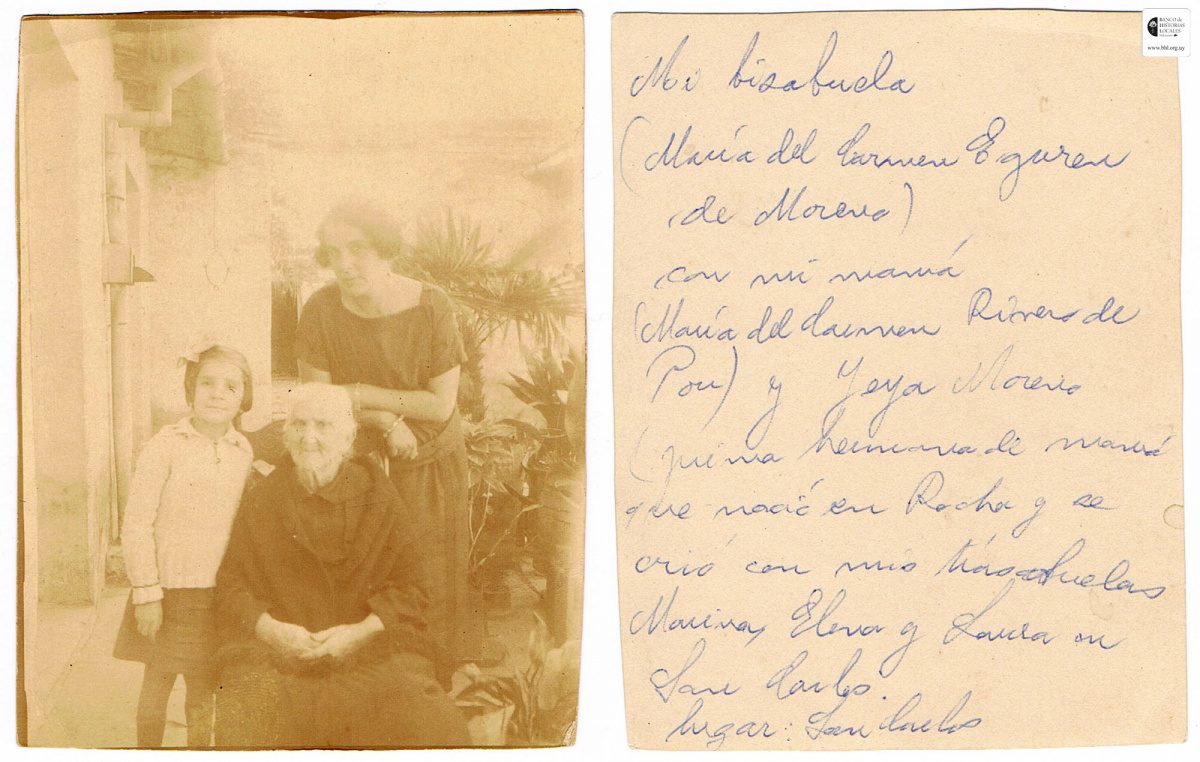 BANCO de
HISTORIAS
LOCALES
www.bhl.org.uy
Mi bisabuela
(María del Carmen Eguren
de Moreno)
con mi mamá
(María del Carmen Rivero de
Pou) y Yeya Moreno
(prima hermana de mamá
que nació en Rocha y se
crió con mis tías abuelas
Marina, Elena y Laura en
San Carlos.
lugar: San Carlos